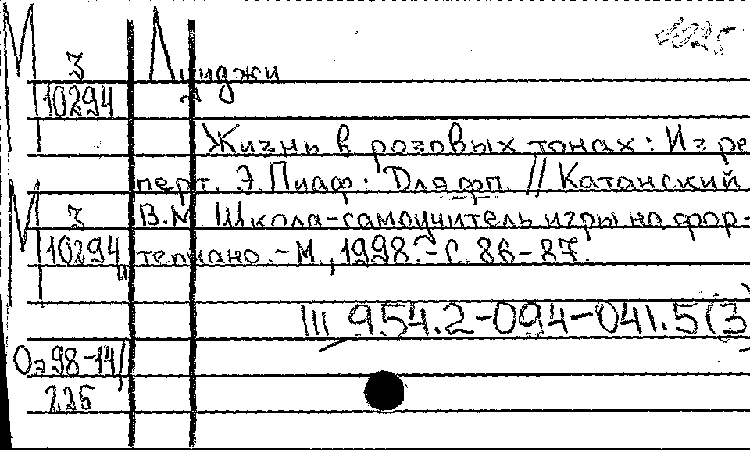 4025
М З Луиджи
10294
Жизнь в розовых тонах: Из ре
перт. Э. Пиаф: Для фп. // Катанский
М З В.М. Школа-самоучитель игры на фор-
10294 тепиано. - М., 1998. - С. 86-87.
III 954.2-094-041.5(3
Оэ98-14/
225